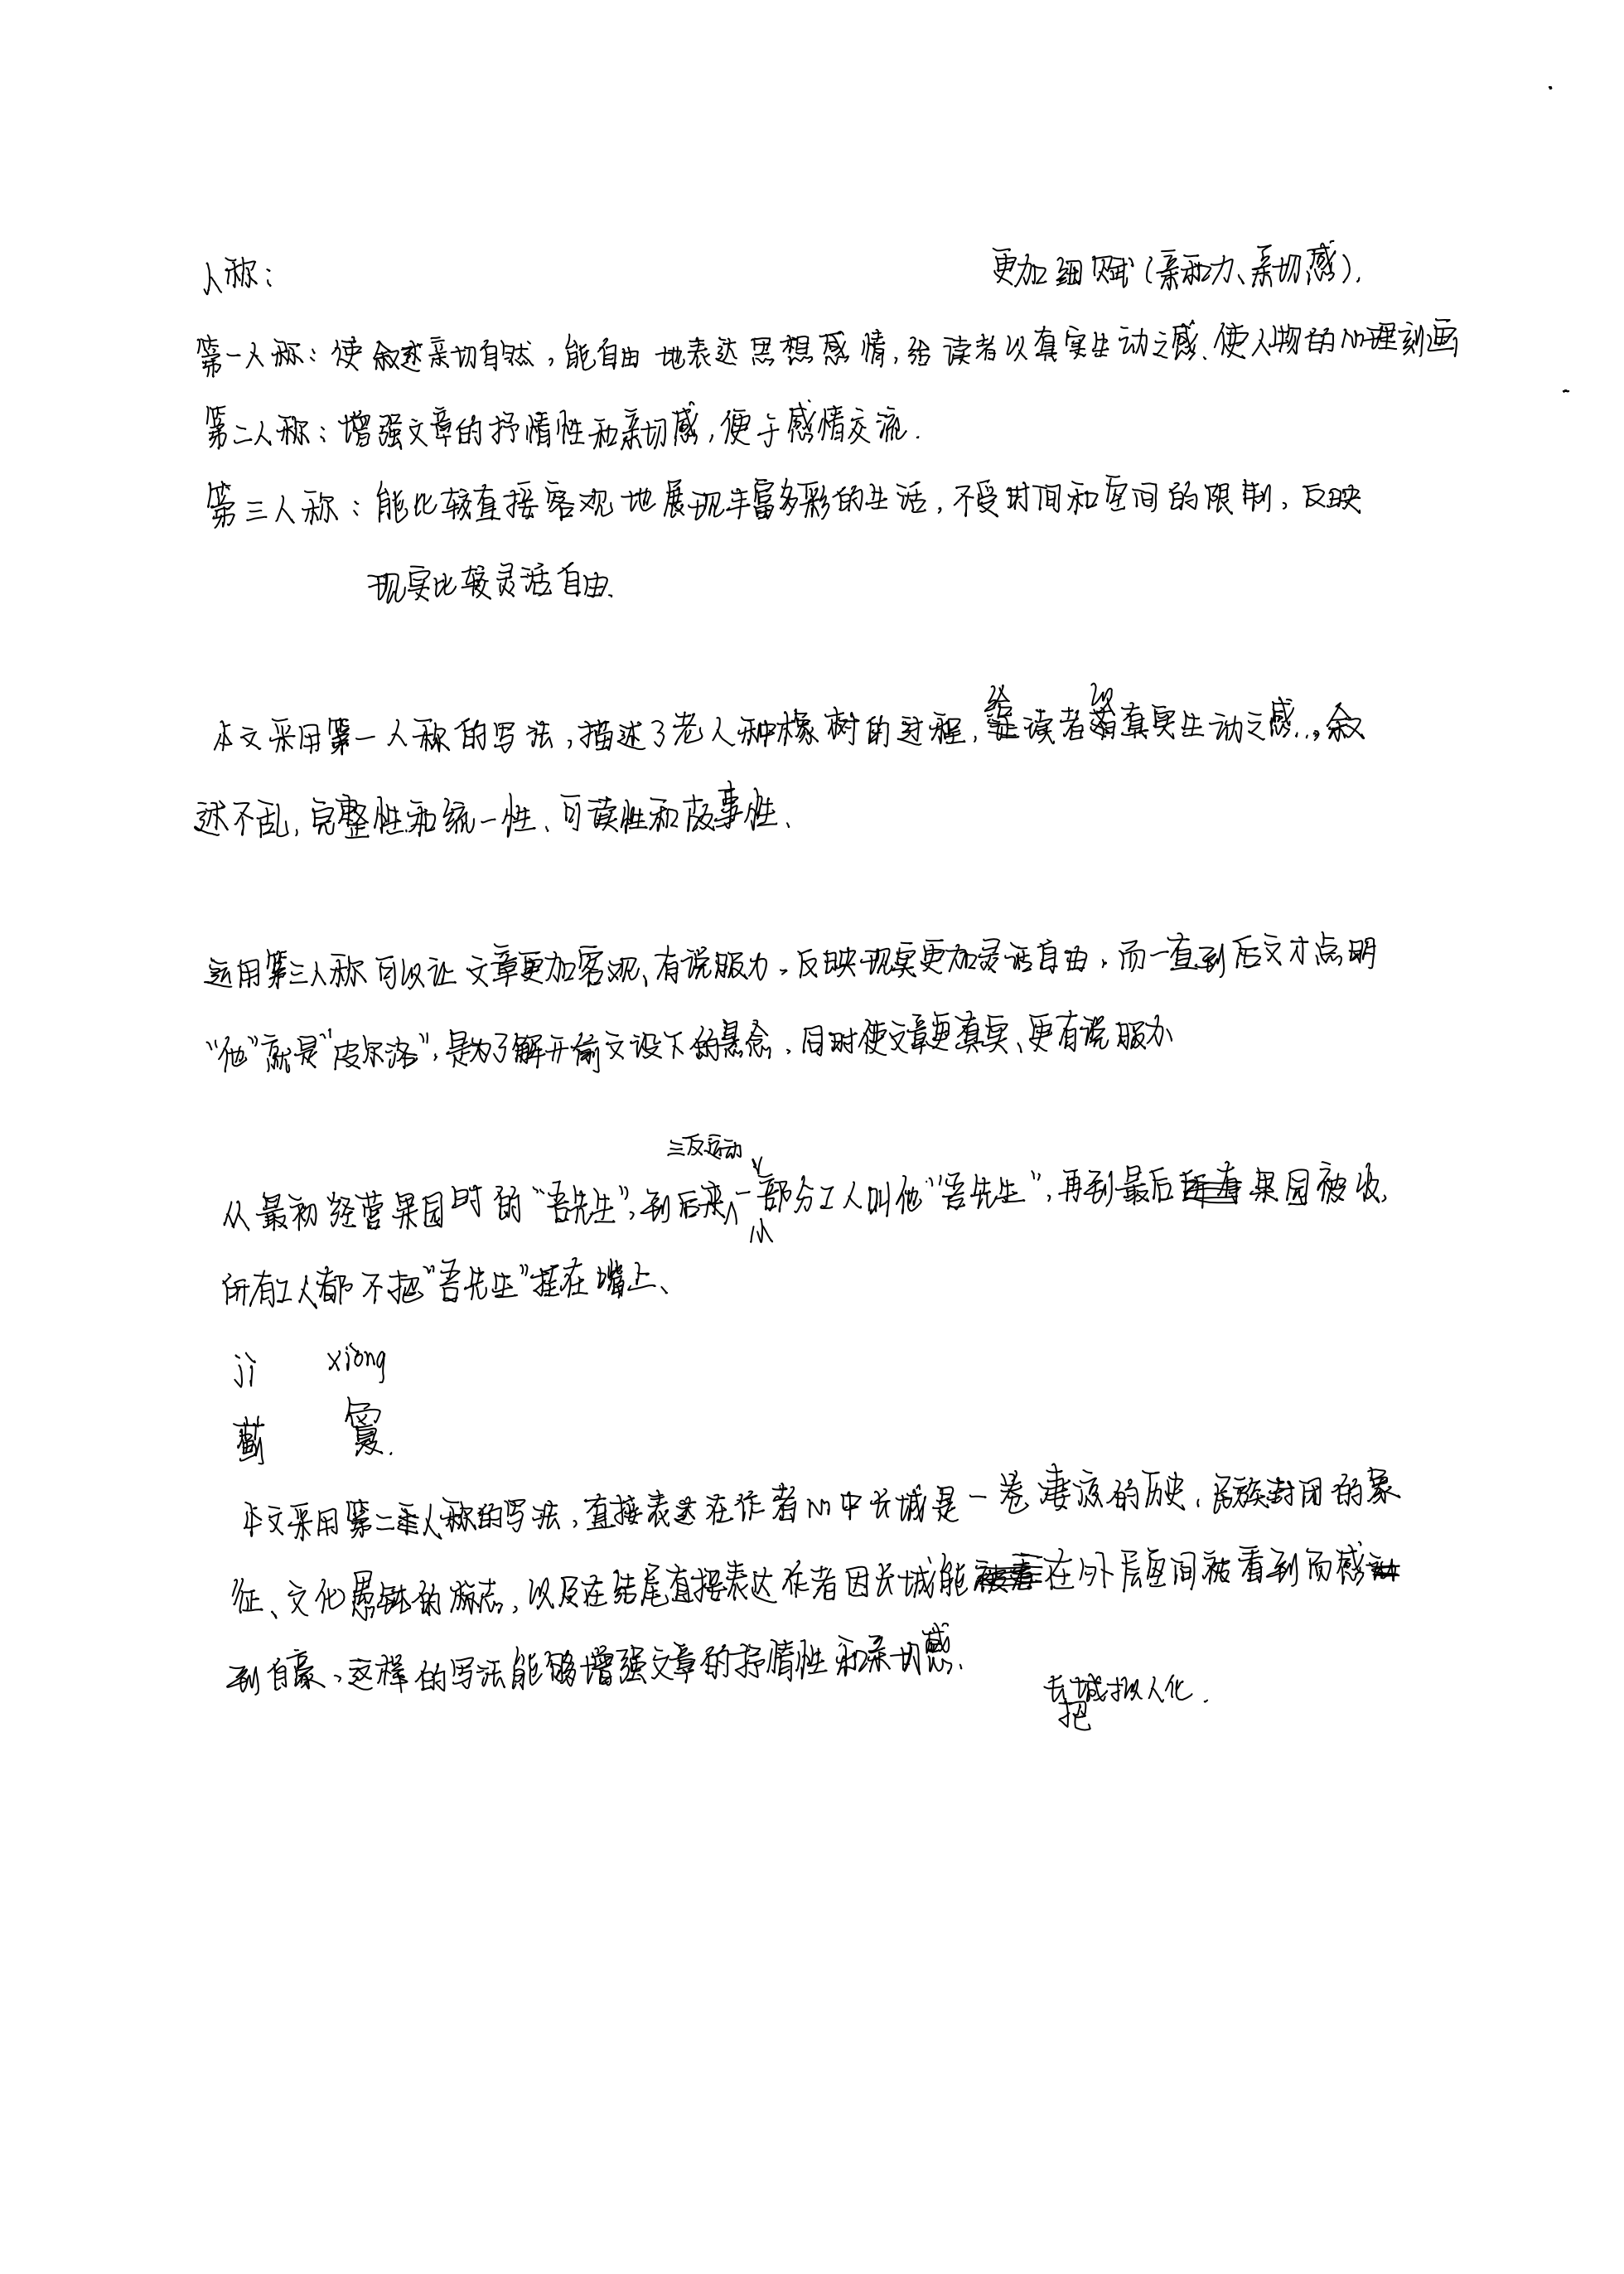 人称：
更加细腻（亲和力、亲切感）.
第一人称：使叙述亲切自然，能自由地表达思想感情，给读者以真实生动之感、使人物的心理刻画
第二人称：增强文章的抒情性和亲切感，便于感情交流.
第三人称：能比较直接客观地展现丰富多彩的生活，不受时间和空间的限制，反映
现实比较灵活自由.
本文采用第一人称的写法，描述了老人种橡树的过程，给读者以真实生动之感...，叙
述不乱，完整性和统一性、可读性和故事性、
运用第三人称可以让文章更加客观、有说服力。反映现实更加灵活自由，而一直到后文才点明
“他”就是“皮尔洛”，是为了解开前文设下的悬念，同时使文章更真实、更有说服力
三反运动
从最初经营果园时的“吾先生”，到后来一小部分工人叫他“吾先生”，再到最后果园被收，
所有工人都不把“吾先生”挂在嘴上、
jì xiòng
蓟 敻.
本文采用第二人称的写法，直接表达在作者心中长城是一卷凄凉的历史、民族封闭的象
征、文化愚钝的标志，以及在结尾直接表达作者因长城能在外层空间被看到而感
到自豪、这样的写法能够增强文章的抒情性和亲切感.
把长城拟人化.